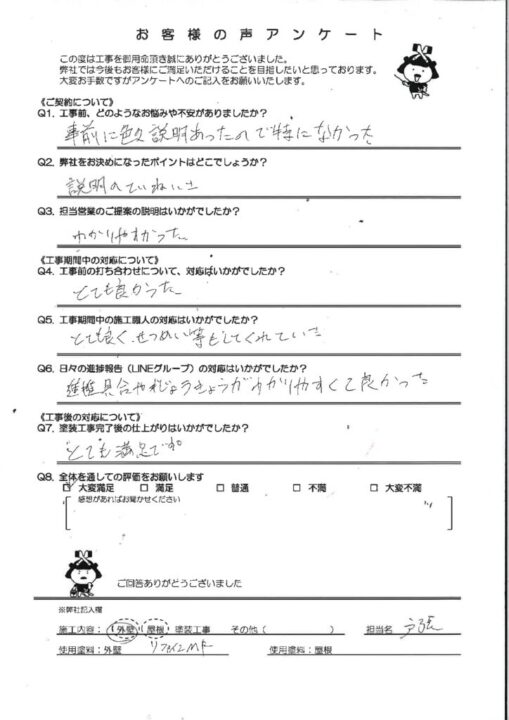 お客様の声アンケート
この度は工事を御用命頂き誠にありがとうございました。
弊社では今後もお客様にご満足いただけることを目指したいと思っております。
大変お手数ですがアンケートへのご記入をお願いいたします。
《ご契約について》
Q1. 工事前、どのようなお悩みや不安がありましたか?
事前に色々説明あったので特になかった
Q2. 弊社をお決めになったポイントはどこでしょうか?
説明のていねいさ
Q3. 担当営業のご提案の説明はいかがでしたか?
わかりやすかった
《工事期間中の対応について》
Q4. 工事前の打ち合わせについて、対応はいかがでしたか?
とても良かった
Q5. 工事期間中の施工職人の対応はいかがでしたか?
とても良く、せつめい等もしてくれていた
Q6. 日々の進捗報告(LINEグループ)の対応はいかがでしたか?
具合やじょうきょうがわかりやすくて良かった
《工事後の対応について》
Q7. 塗装工事完了後の仕上がりはいかがでしたか?
とても満足です。
Q8. 全体を通しての評価をお願いします
□ 大変満足 □ 満足 □ 普通 □ 不満 □ 大変不満
感想があればお聞かせください
ご回答ありがとうございました
※弊社記入欄
施工内容:(外壁)(屋根) 塗装工事 その他( ) 担当名
使用塗料:外壁 リファインMF 使用塗料:屋根